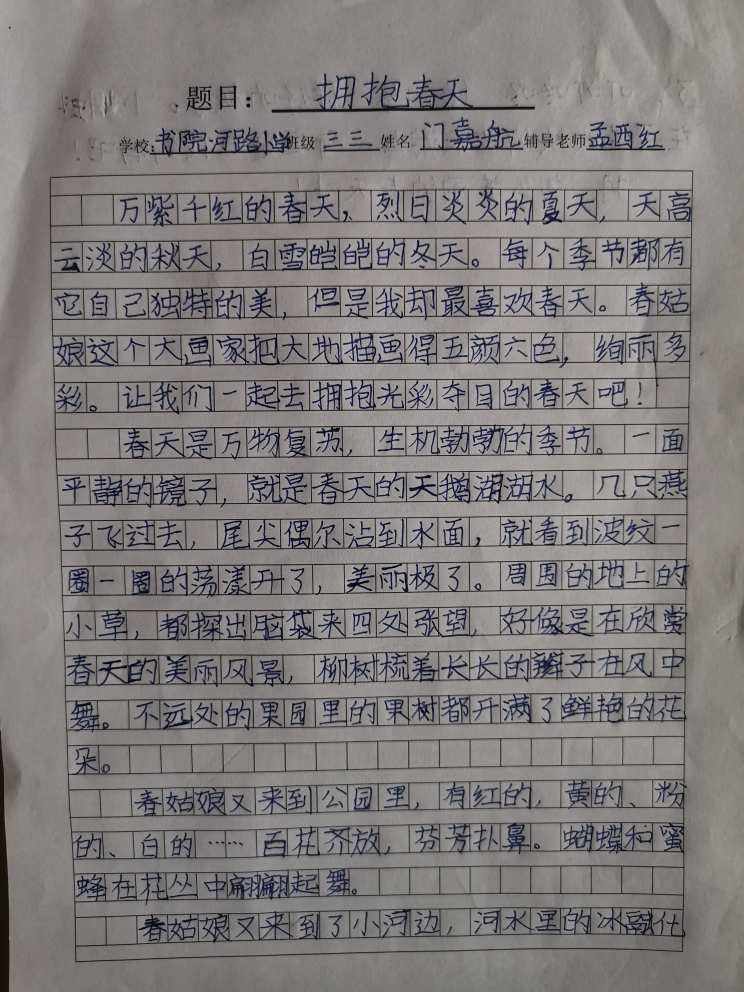 题目：拥抱春天
学校：书院河路小学班级 三三 姓名 门嘉航 辅导老师 孟西红
万紫千红的春天，烈日炎炎的夏天，天高
云淡的秋天，白雪皑皑的冬天。每个季节都有
它自己独特的美，但是我却最喜欢春天。春姑
娘这个大画家把大地描画得五颜六色，绚丽多
彩。让我们一起去拥抱光彩夺目的春天吧！
春天是万物复苏，生机勃勃的季节。一面
平静的镜子，就是春天的天鹅湖湖水。几只燕
子飞过去，尾尖偶尔沾到水面，就看到波纹一
圈一圈的荡漾开了，美丽极了。周围的地上的
小草，都探出脑袋来四处张望，好像是在欣赏
春天的美丽风景，柳树梳着长长的辫子在风中
舞。不远处的果园里的果树都开满了鲜艳的花
朵。
春姑娘又来到公园里，有红的，黄的、粉
的、白的……百花齐放，芬芳扑鼻。蝴蝶和蜜
蜂在花丛中翩翩起舞。
春姑娘又来到了小河边，河水里的冰融化